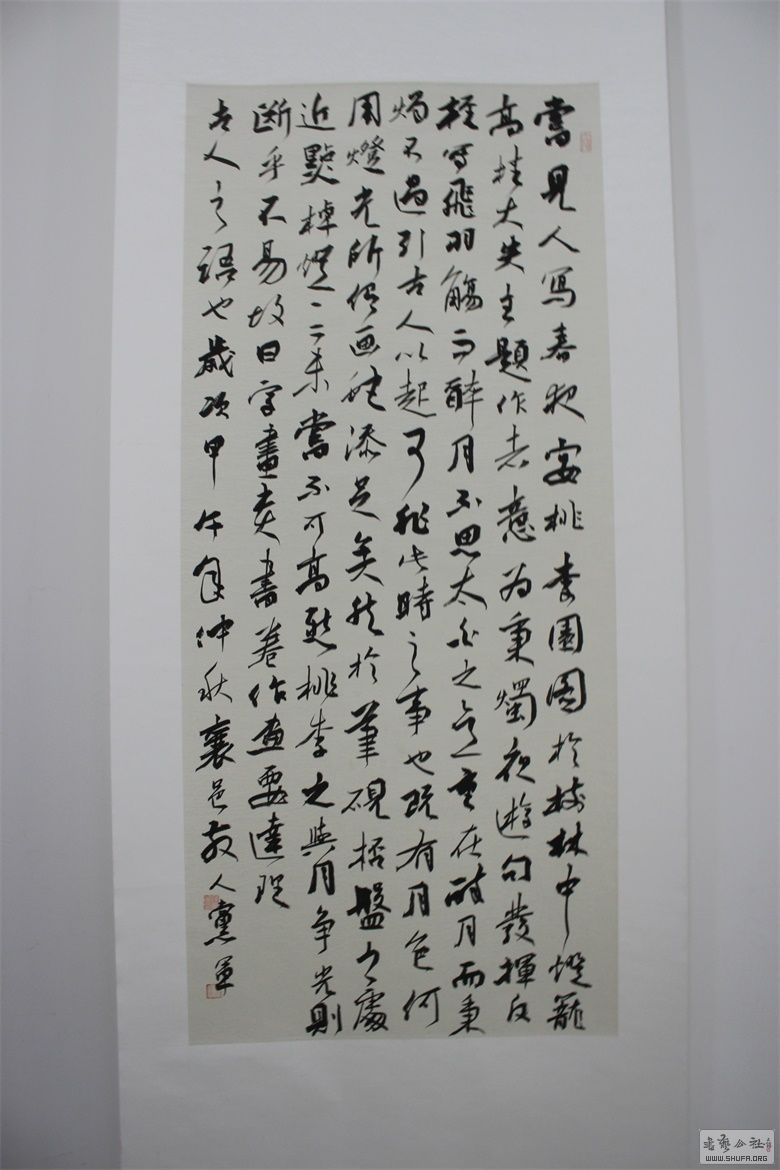 嘗見人寫春夜宴桃李園圖於樹林中燈籠
高挂大失主題作者意為秉燭夜遊句發揮反
輕寫飛羽觴而醉月不思太白之意重在醉月而秉
燭不過引古人以起可非此時之事也既有月色何
用燈光所谓画蛇添足矣然於筆硯杯盤之處
近點棹燈一二未嘗不可高懸桃李之與月争光則
斷乎不易故曰字畫書卷作畫要達理
古人之語也歲次甲午年仲秋襄邑散人憲軍
書藝公社
WWW.SHUFA.ORG